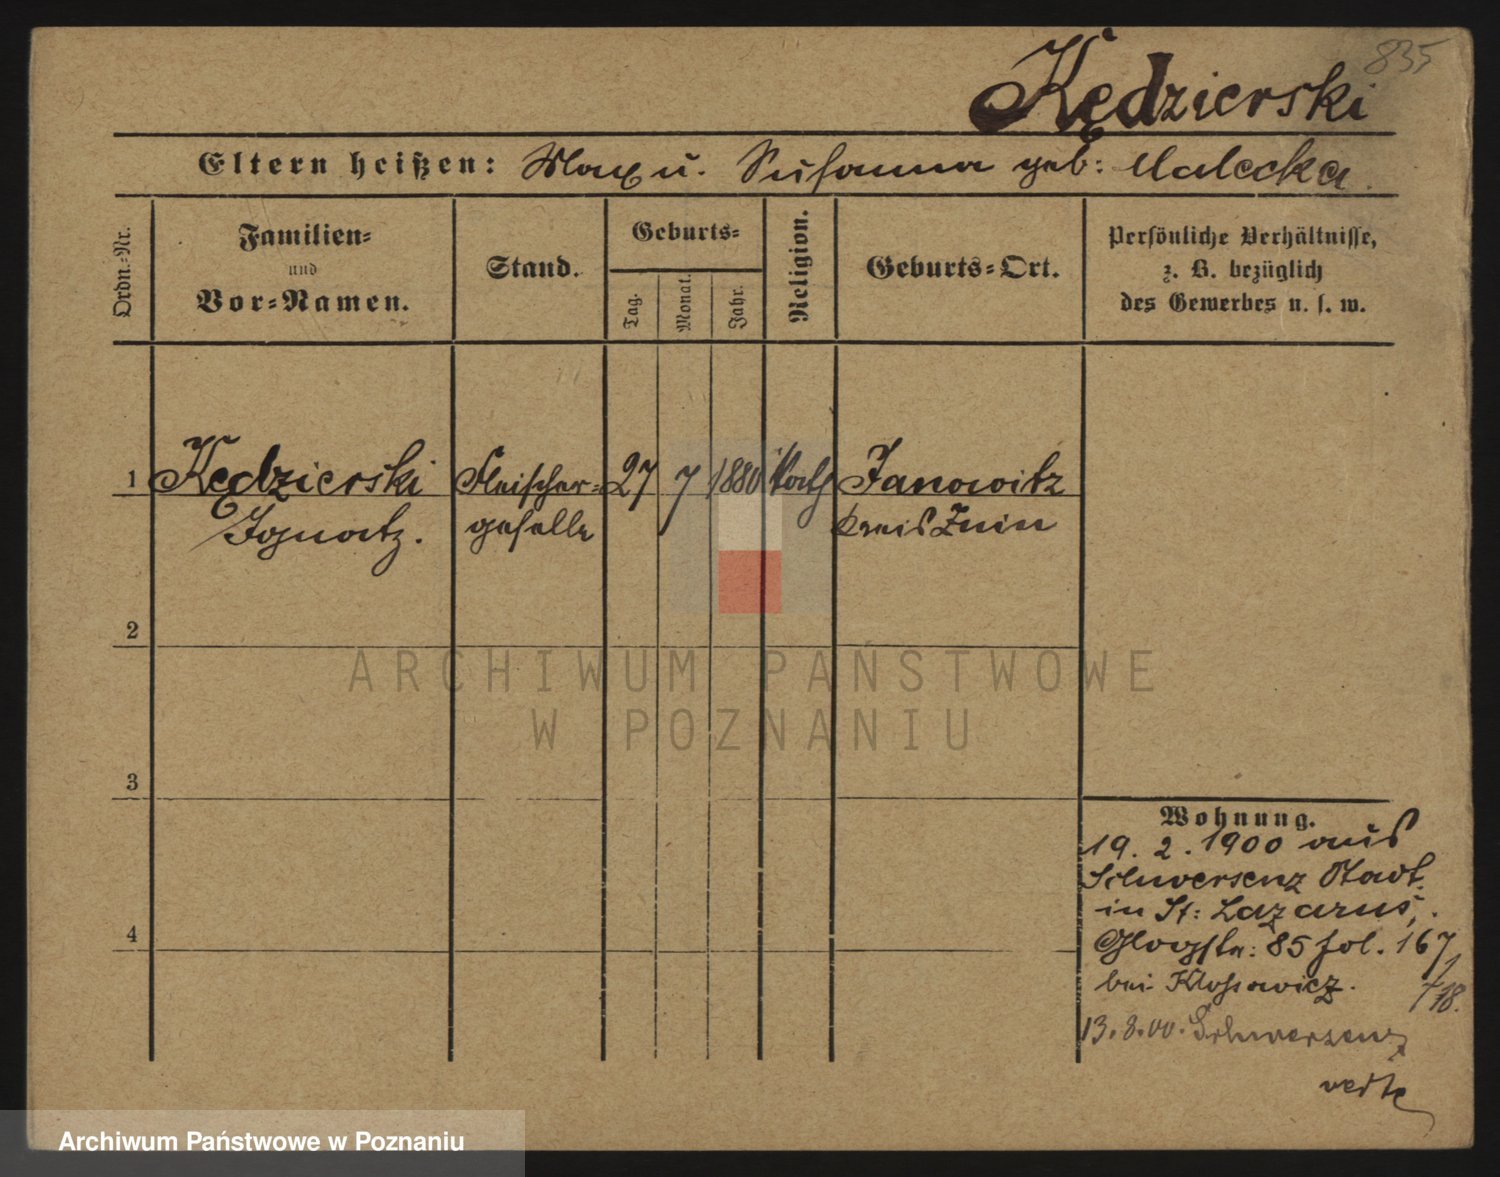 835
Kędzierski
Eltern heißen: Max u. Susanna geb: Malecka.
Ordn.-Nr.
Familien-
und
Vor-Namen.
Stand.
Geburts-
Tag.
Monat.
Jahr.
Religion.
Geburts-Ort.
Persönliche Verhältnisse,
z. B. bezüglich
des Gewerbes u. s. w.
1 Kędzierski Fleischer- 27 7 1880 kath Janowitz
Ignatz. geselle Kreis Znin
2
3
4
Wohnung.
19. 2. 1900 aus
Schwersenz Stadt.
in St: Lazarus,
Glogstr: 85 fol. 167
bei Klossowicz.
13. 8. 00. Schwersenz
verte
ARCHIWUM PAŃSTWOWE
W POZNANIU
Archiwum Państwowe w Poznaniu